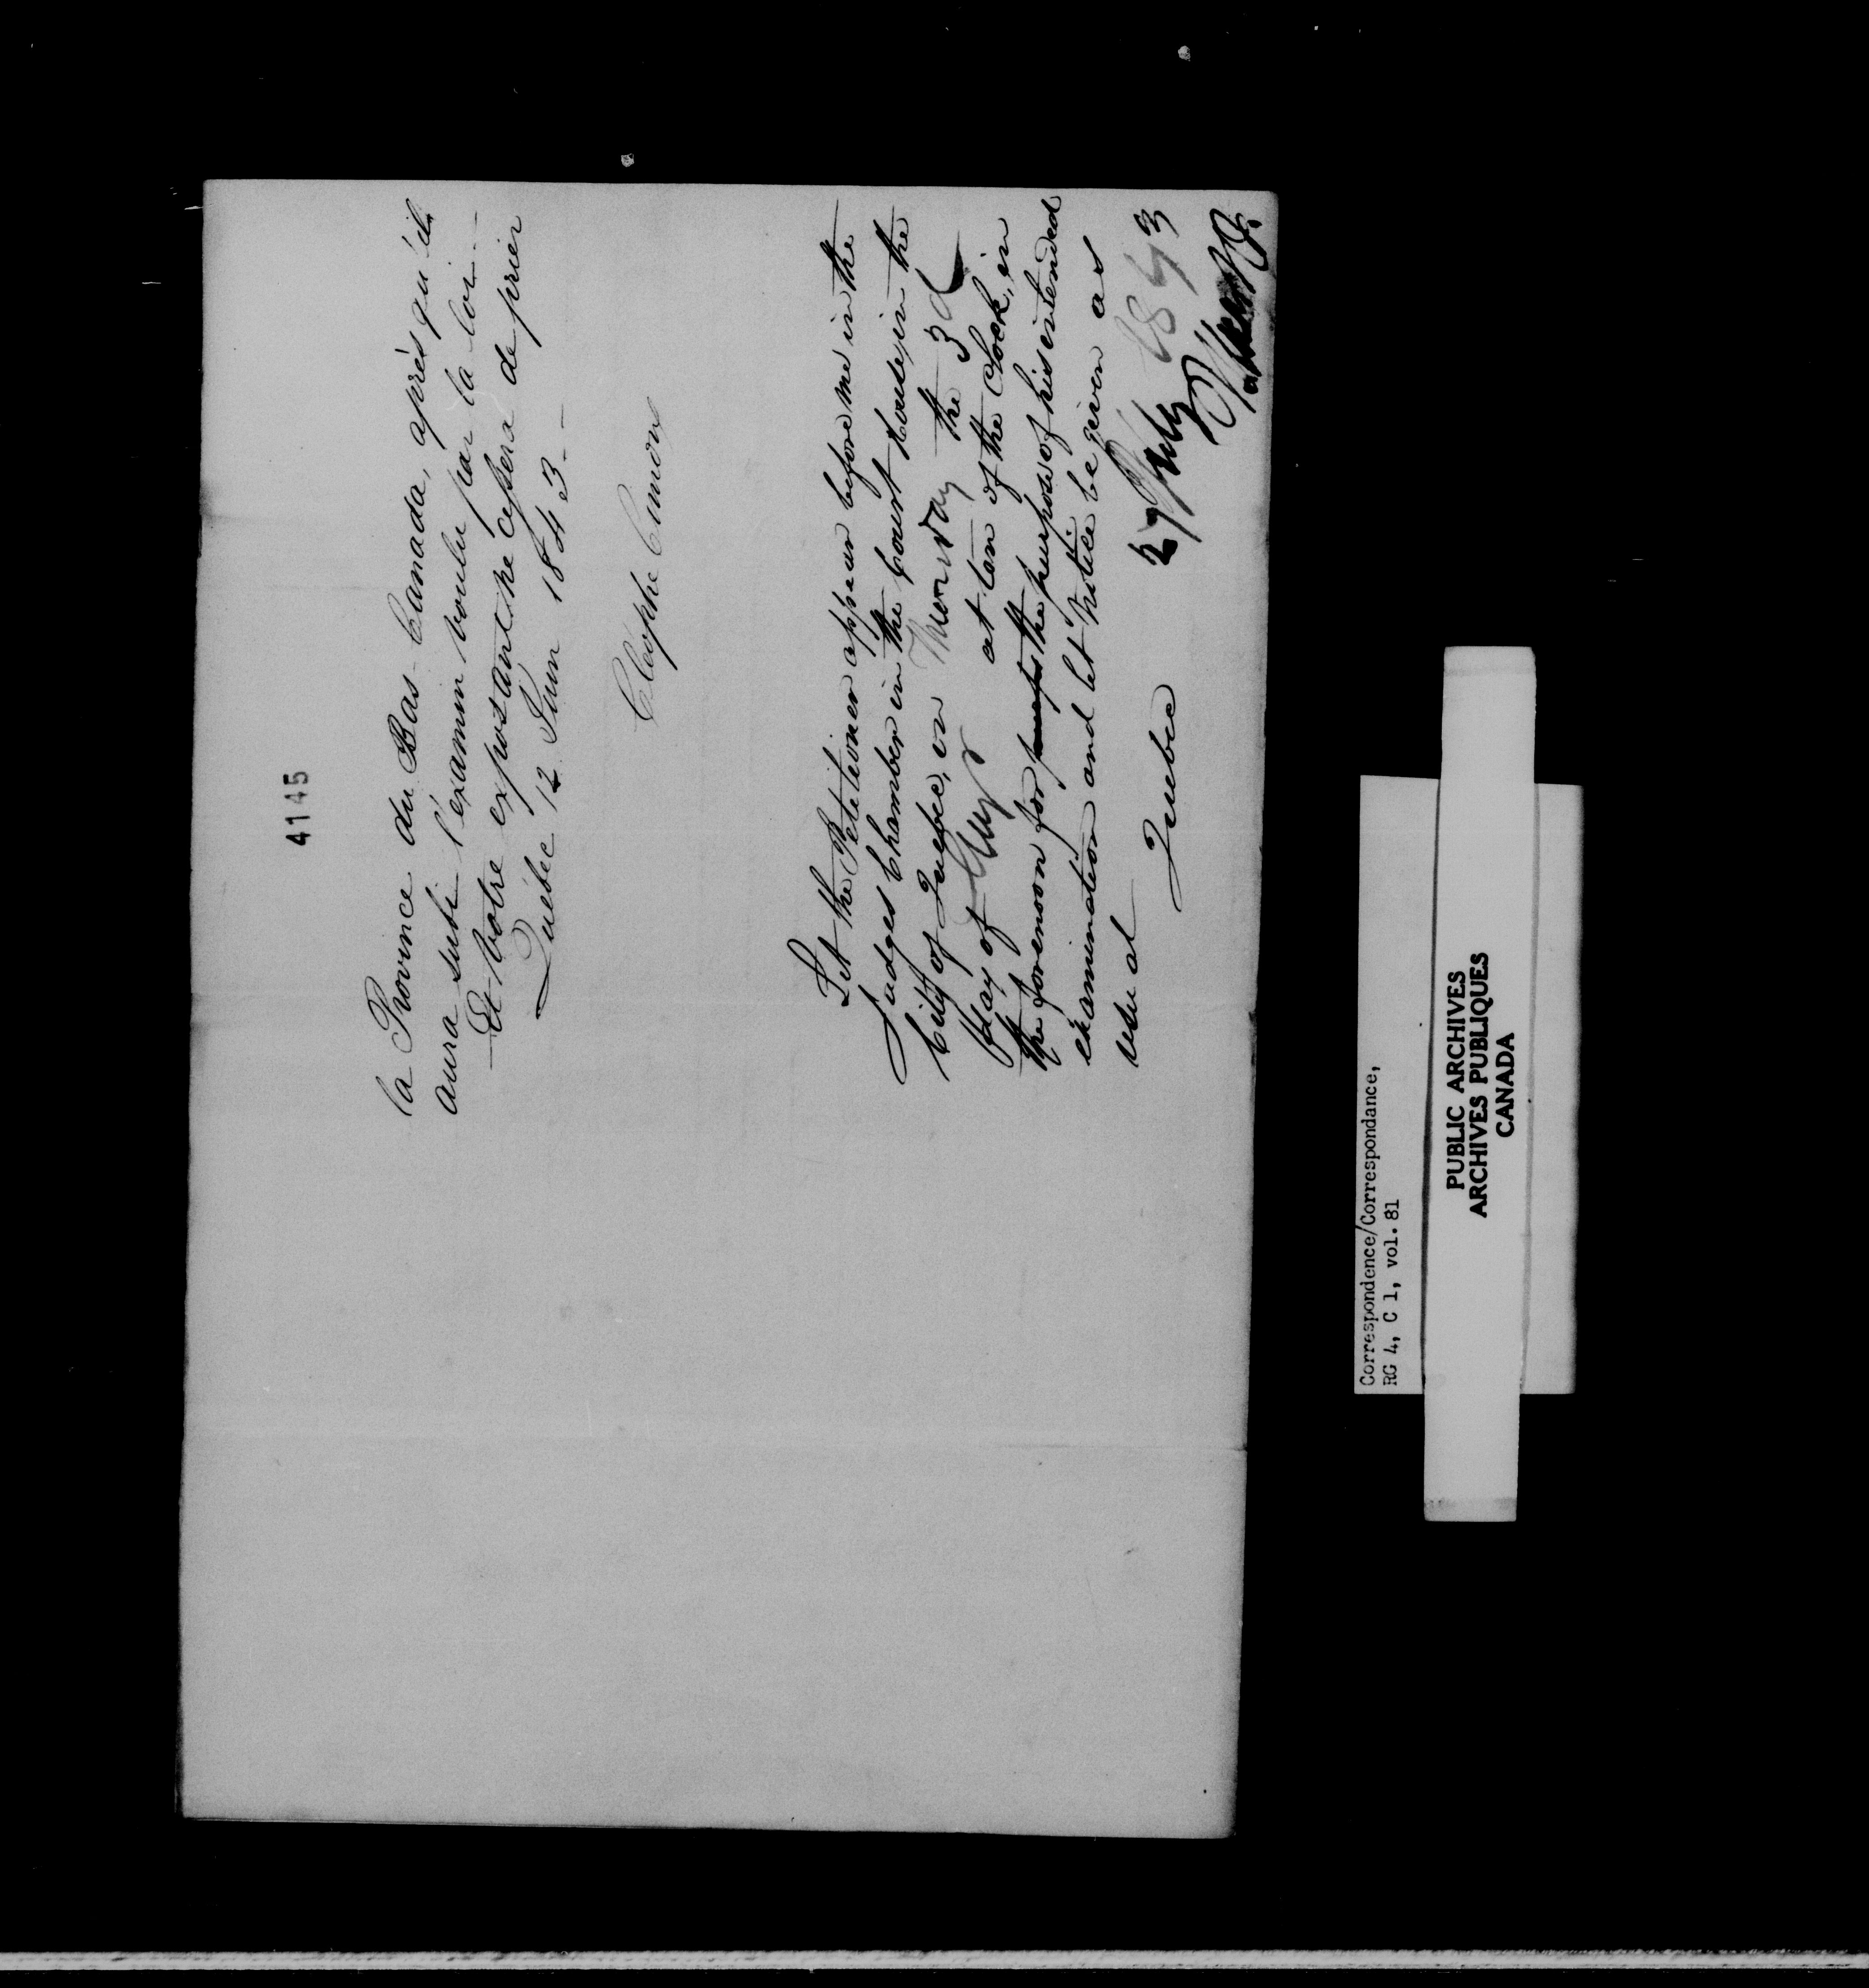 4145
la Province du Bas-Canada, après qu'il
aura subi l'examin voulu par la loi -
Et votre exposant ne cessera de prier
Québec 12 Juin 1843 -
Cléophe Cimon
Let the Petitioner appear before me in the
Judges Chamber in the Court House, in the
City of Quebec, on Thursday the 3d
day of at ten of the Clock, in
the forenoon for the purpose of his intended
examination and let notice be given as
usual
Quebec 27 July 1843
Correspondence/Correspondance,
RG 4, C 1, vol. 81
PUBLIC ARCHIVES
ARCHIVES PUBLIQUES
CANADA